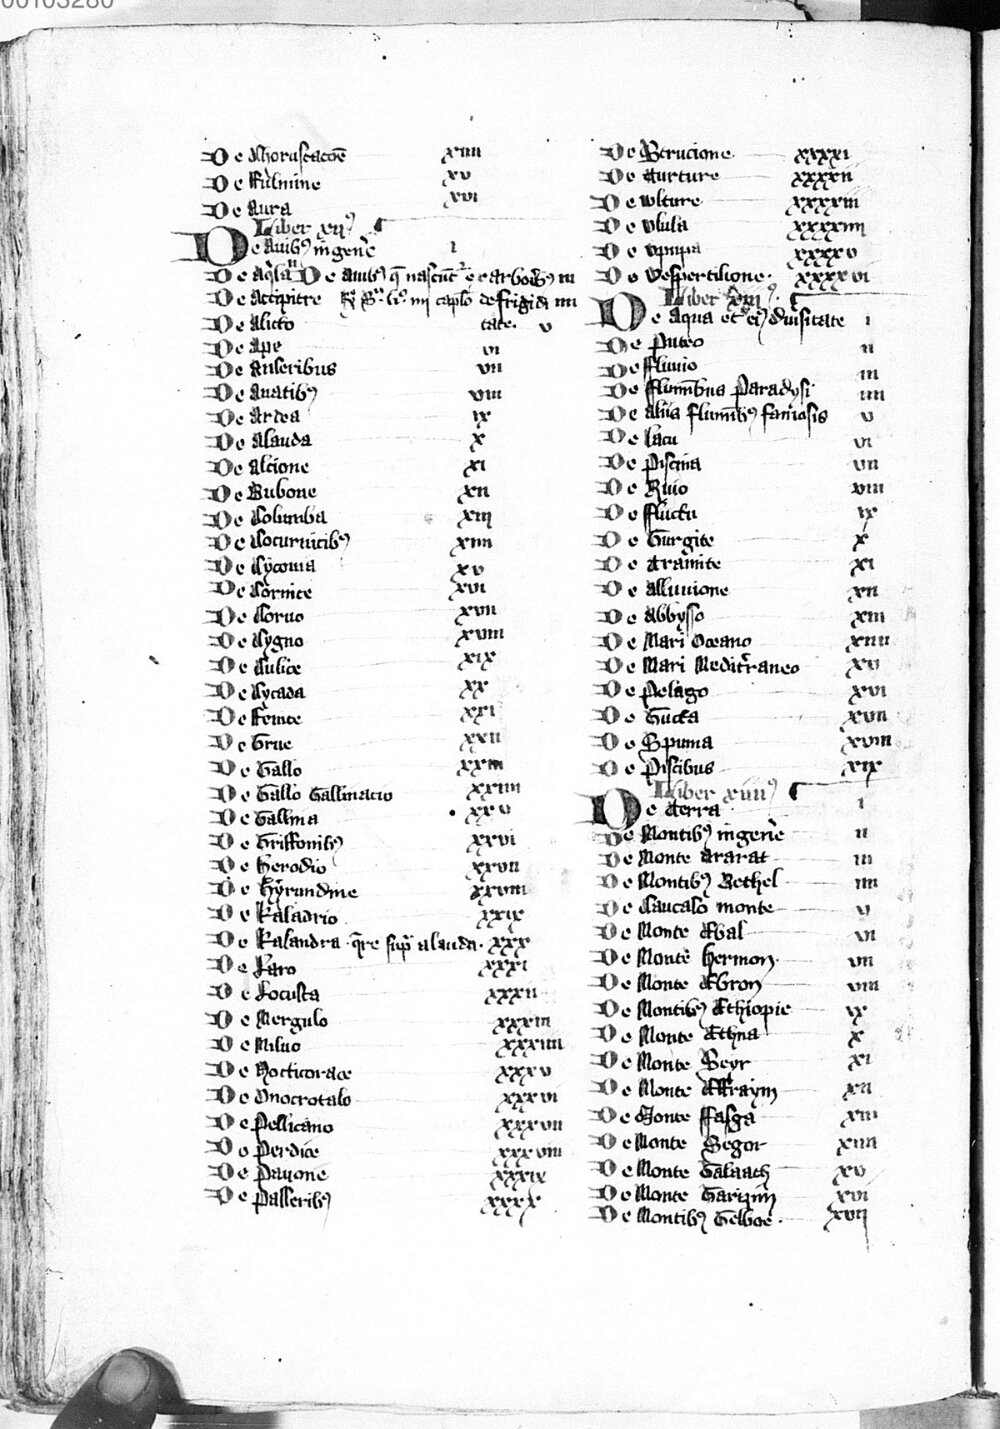 00103280
De Choruscacōe xiiii
De Fulmine xv
De Aura xvi
Liber xii⁹
De Auib⁹ in gen̄e i
De Aq̄la ii De auib⁹ q̄ nascūt᷑
De Accipitre
De Alieto tate. v
De Ape vi
De Anseribus vii
De Anatib⁹ viii
De Ardea ix
De Alauda x
De Alcione xi
De Bubone xii
De Columba xiii
De Coturnicib⁹ xiiii
De Cyconia xv
De Cornice xvi
De Coruo xvii
De Cygno xviii
De Culice xix
De Cycada xx
De Fenice xxi
De Grue xxii
De Gallo xxiii
De Gallo Gallinacio xxiiii
De Gallina xxv
De Griffonib⁹ xxvi
De Herodio xxvii
De Hyrundine xxviii
De Kaladrio xxix
De Kalandra q̄re sup̄ alauda. xxx
De Laro xxxi
De Locusta xxxii
De Mergulo xxxiii
De Miluo xxxiiii
De Nocticorace xxxv
De Onocrotalo xxxvi
De Pellicano xxxvii
De Perdice xxxviii
De Pauone xxxix
De Passerib⁹ xxxx
De Strucione xxxxi
De Turture xxxxii
De wlture xxxxiii
De vlula xxxxiiii
De vpupa xxxxv
De vespertilione. xxxxvi
Liber xiii⁹
De Aqua et ei⁹ diu̾sitate i
De Puteo ii
De Fluuio iii
De Fluminibus Paradysi iiii
De aliis flumīb⁹ famosis v
De Lacu vi
De Piscina vii
De Riuo viii
De Fluctu ix
De Gurgite x
De Tramite xi
De Alluuione xii
De Abbysso xiii
De Mari Oceano xiiii
De Mari Medit᷑raneo xv
De Pelago xvi
De Gutta xvii
De Spuma xviii
De Piscibus xix
Liber xiiii⁹
De Terra i
De Montib⁹ in gen̄e ii
De Monte Ararat iii
De Montib⁹ Bethel iiii
De Caucaso monte v
De Monte Ebal vi
De Monte Hermon vii
De Monte Ebron viii
De Montib⁹ Ethiopie ix
De Monte Ethna x
De Monte Seyr xi
De Monte xii
De Monte Fasga xiii
De Monte Segor xiiii
De Monte Galaath xv
De Monte Garizim xvi
De Montib⁹ Gelboe. xvii